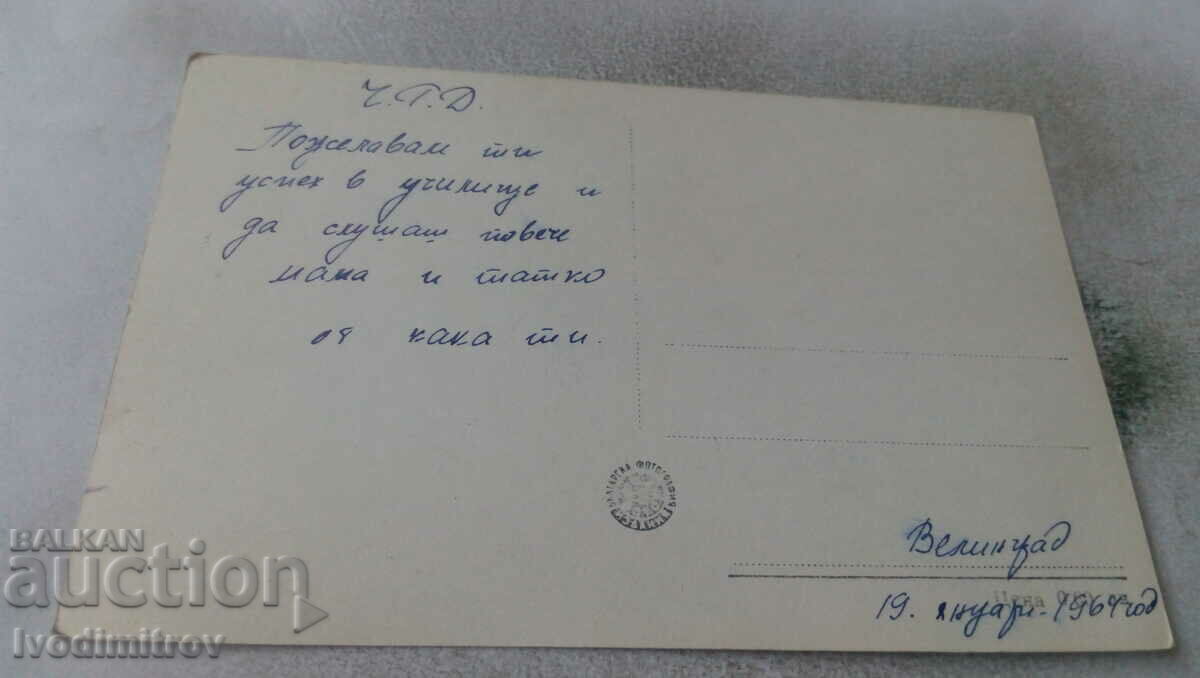 Ч.Г.Д.
Пожелавам ти
успех в училище и
да слушаш повече
мама и татко
от кака ти.
БЪЛГАРСКА ФОТОГРАФИЯ
Велинград
Цена
19. януари - 1964 год
BALKAN
auction
Ivodimitrov